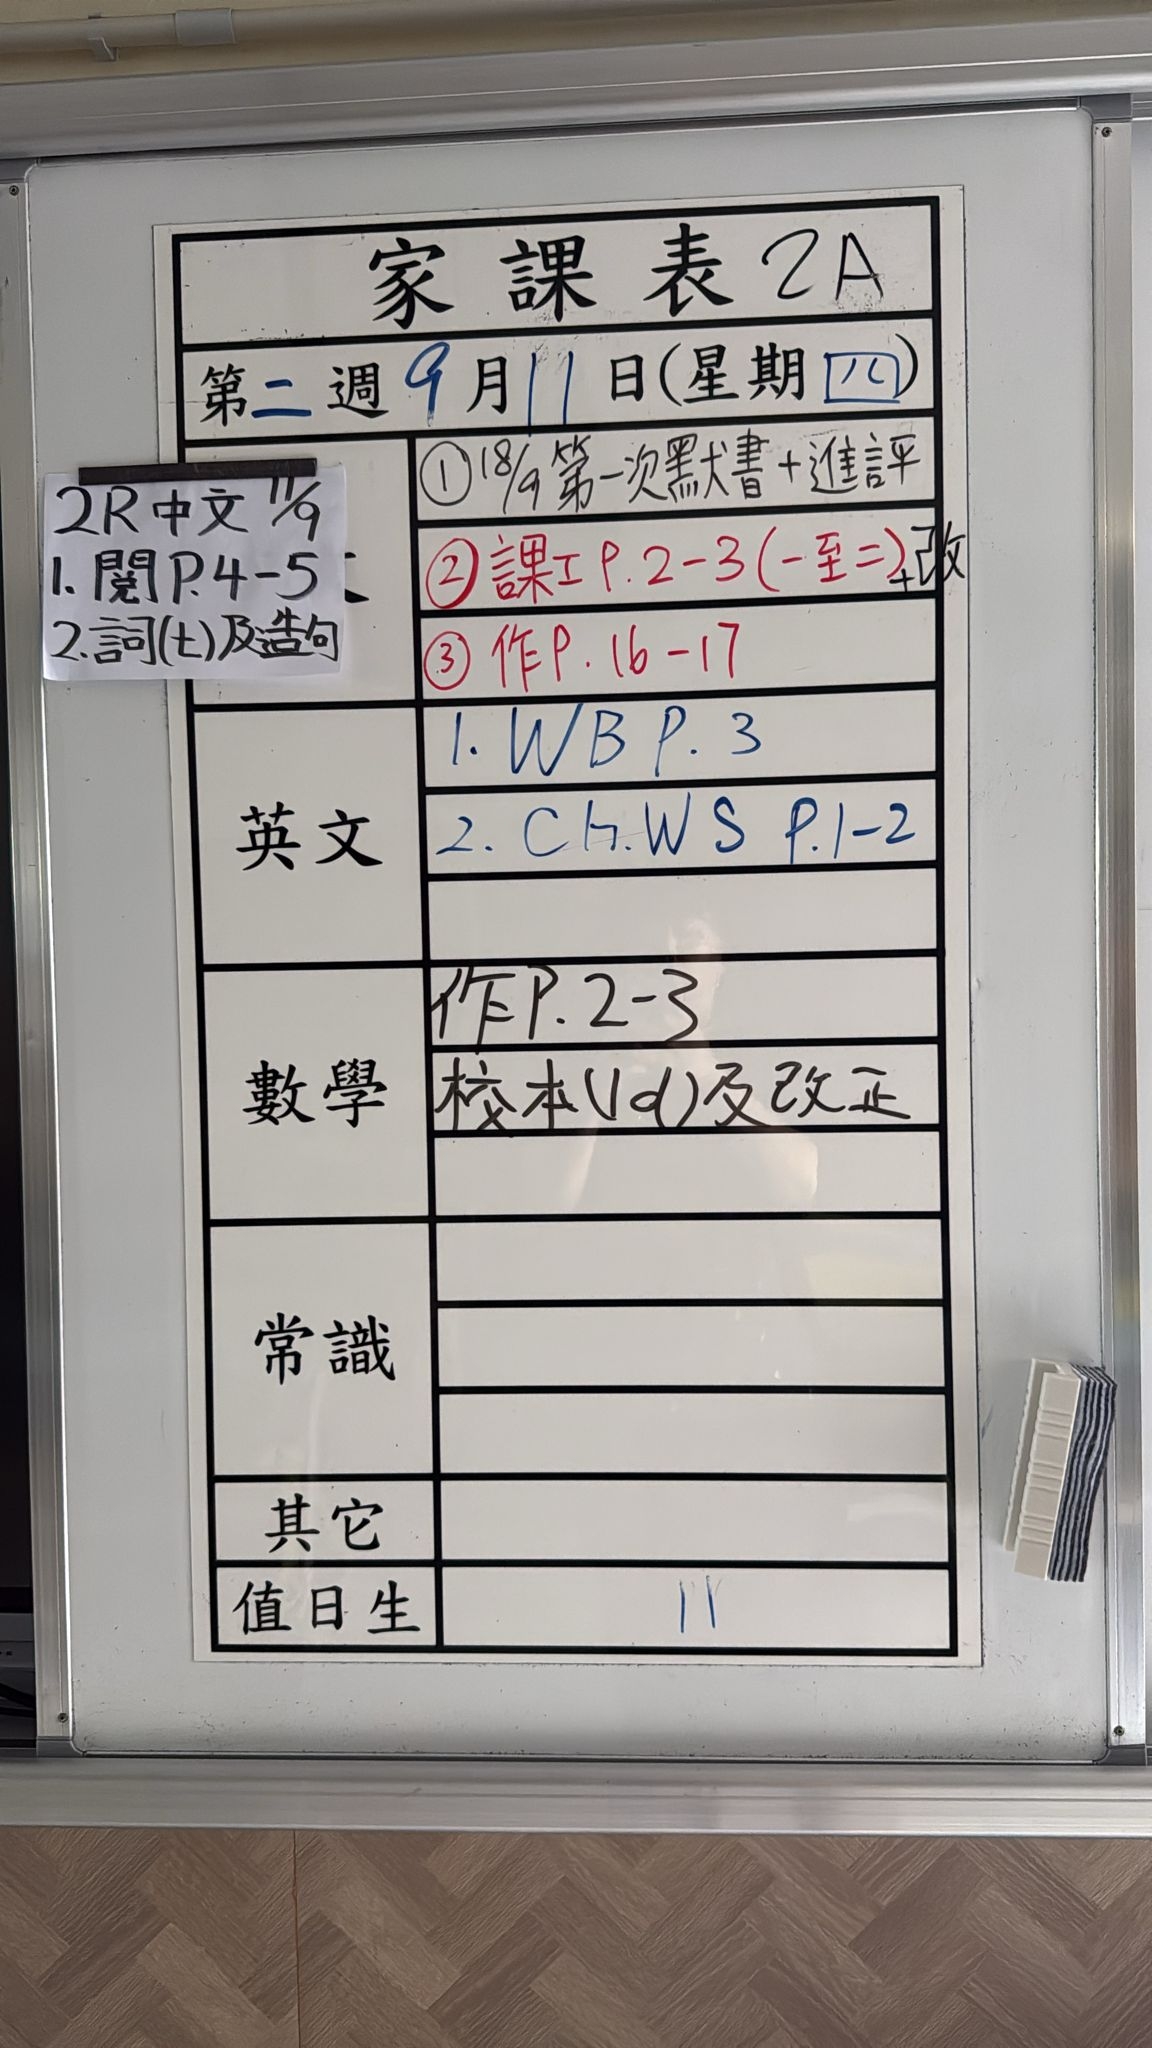 家課表 2A
第二週 9月11日(星期四)
2R中文 11/9
1. 閱P.4-5
2. 詞(七)及造句
① 18/9 第一次默書+進評
② 課工P.2-3(一至二)+改
③ 作P.16-17
英文
1. WB P.3
2. Ch.WS P.1-2
數學
作P.2-3
校本(1d)及改正
常識
其它
值日生
11